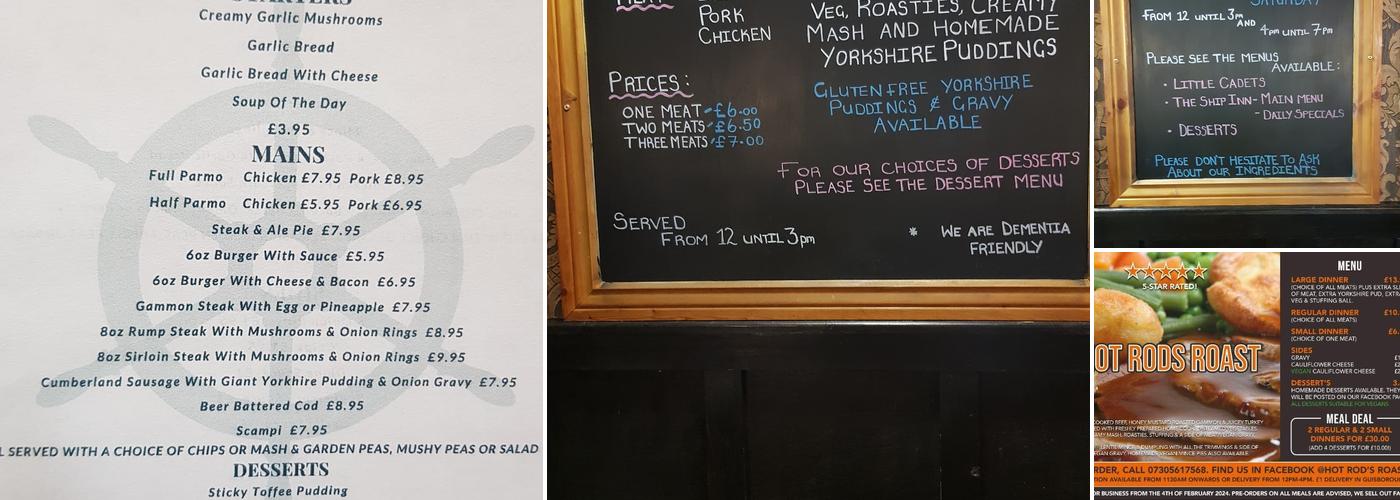 STARTERS
Creamy Garlic Mushrooms
Garlic Bread
Garlic Bread With Cheese
Soup Of The Day
£3.95
MAINS
Full Parmo Chicken £7.95 Pork £8.95
Half Parmo Chicken £5.95 Pork £6.95
Steak & Ale Pie £7.95
6oz Burger With Sauce £5.95
6oz Burger With Cheese & Bacon £6.95
Gammon Steak With Egg or Pineapple £7.95
8oz Rump Steak With Mushrooms & Onion Rings £8.95
8oz Sirloin Steak With Mushrooms & Onion Rings £9.95
Cumberland Sausage With Giant Yorkhire Pudding & Onion Gravy £7.95
Beer Battered Cod £8.95
Scampi £7.95
L SERVED WITH A CHOICE OF CHIPS OR MASH & GARDEN PEAS, MUSHY PEAS OR SALAD
DESSERTS
Sticky Toffee Pudding
MEAT
PORK
CHICKEN
VEG, ROASTIES, CREAMY
MASH AND HOMEMADE
YORKSHIRE PUDDINGS
PRICES:
ONE MEAT - £6.00
TWO MEATS - £6.50
THREE MEATS - £7.00
GLUTEN FREE YORKSHIRE
PUDDINGS & GRAVY
AVAILABLE
FOR OUR CHOICES OF DESSERTS
PLEASE SEE THE DESSERT MENU
SERVED
FROM 12 UNTIL 3pm
* WE ARE DEMENTIA
FRIENDLY
SATURDAY
FROM 12 UNTIL 3pm
AND
4pm UNTIL 7pm
PLEASE SEE THE MENUS
AVAILABLE:
• LITTLE CADETS
• THE SHIP INN - MAIN MENU
- DAILY SPECIALS
• DESSERTS
PLEASE DON'T HESITATE TO ASK
ABOUT OUR INGREDIENTS
5-STAR RATED!
OT RODS ROAST
MENU
LARGE DINNER £13.
(CHOICE OF ALL MEATS) PLUS EXTRA
OF MEAT, EXTRA YORKSHIRE PUD, EXTRA
VEG & STUFFING BALL.
REGULAR DINNER £10.
(CHOICE OF ALL MEATS)
SMALL DINNER £6.
(CHOICE OF ONE MEAT)
SIDES
GRAVY
CAULIFLOWER CHEESE
VEGAN CAULIFLOWER CHEESE
DESSERT'S 3.
HOMEMADE DESSERTS AVAILABLE. THEY
WILL BE POSTED ON OUR FACEBOOK
ALL DESSERTS SUITABLE FOR VEGANS
MEAL DEAL
2 REGULAR & 2 SMALL
DINNERS FOR £30.00
(ADD 4 DESSERTS FOR £10.00)
RDER, CALL 07305617568. FIND US IN FACEBOOK @HOT ROD'S ROAS
TION AVAILABLE FROM 1130AM ONWARDS OR DELIVERY FROM 12PM-4PM. £1 DELIVERY IN GUISBOR
R BUSINESS FROM THE 4TH OF FEBRUARY 2024. PRE-ORDERS ON ALL MEALS ARE ADVISED, WE SELL OUT